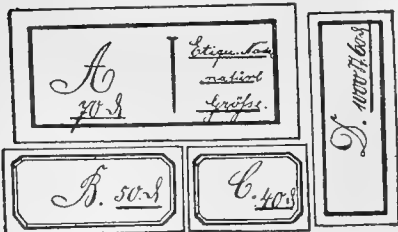 A
70 ₰
Etiqu.
natürl
Größe.
B. 50 ₰
C. 40 ₰
D. 1000 60 ₰